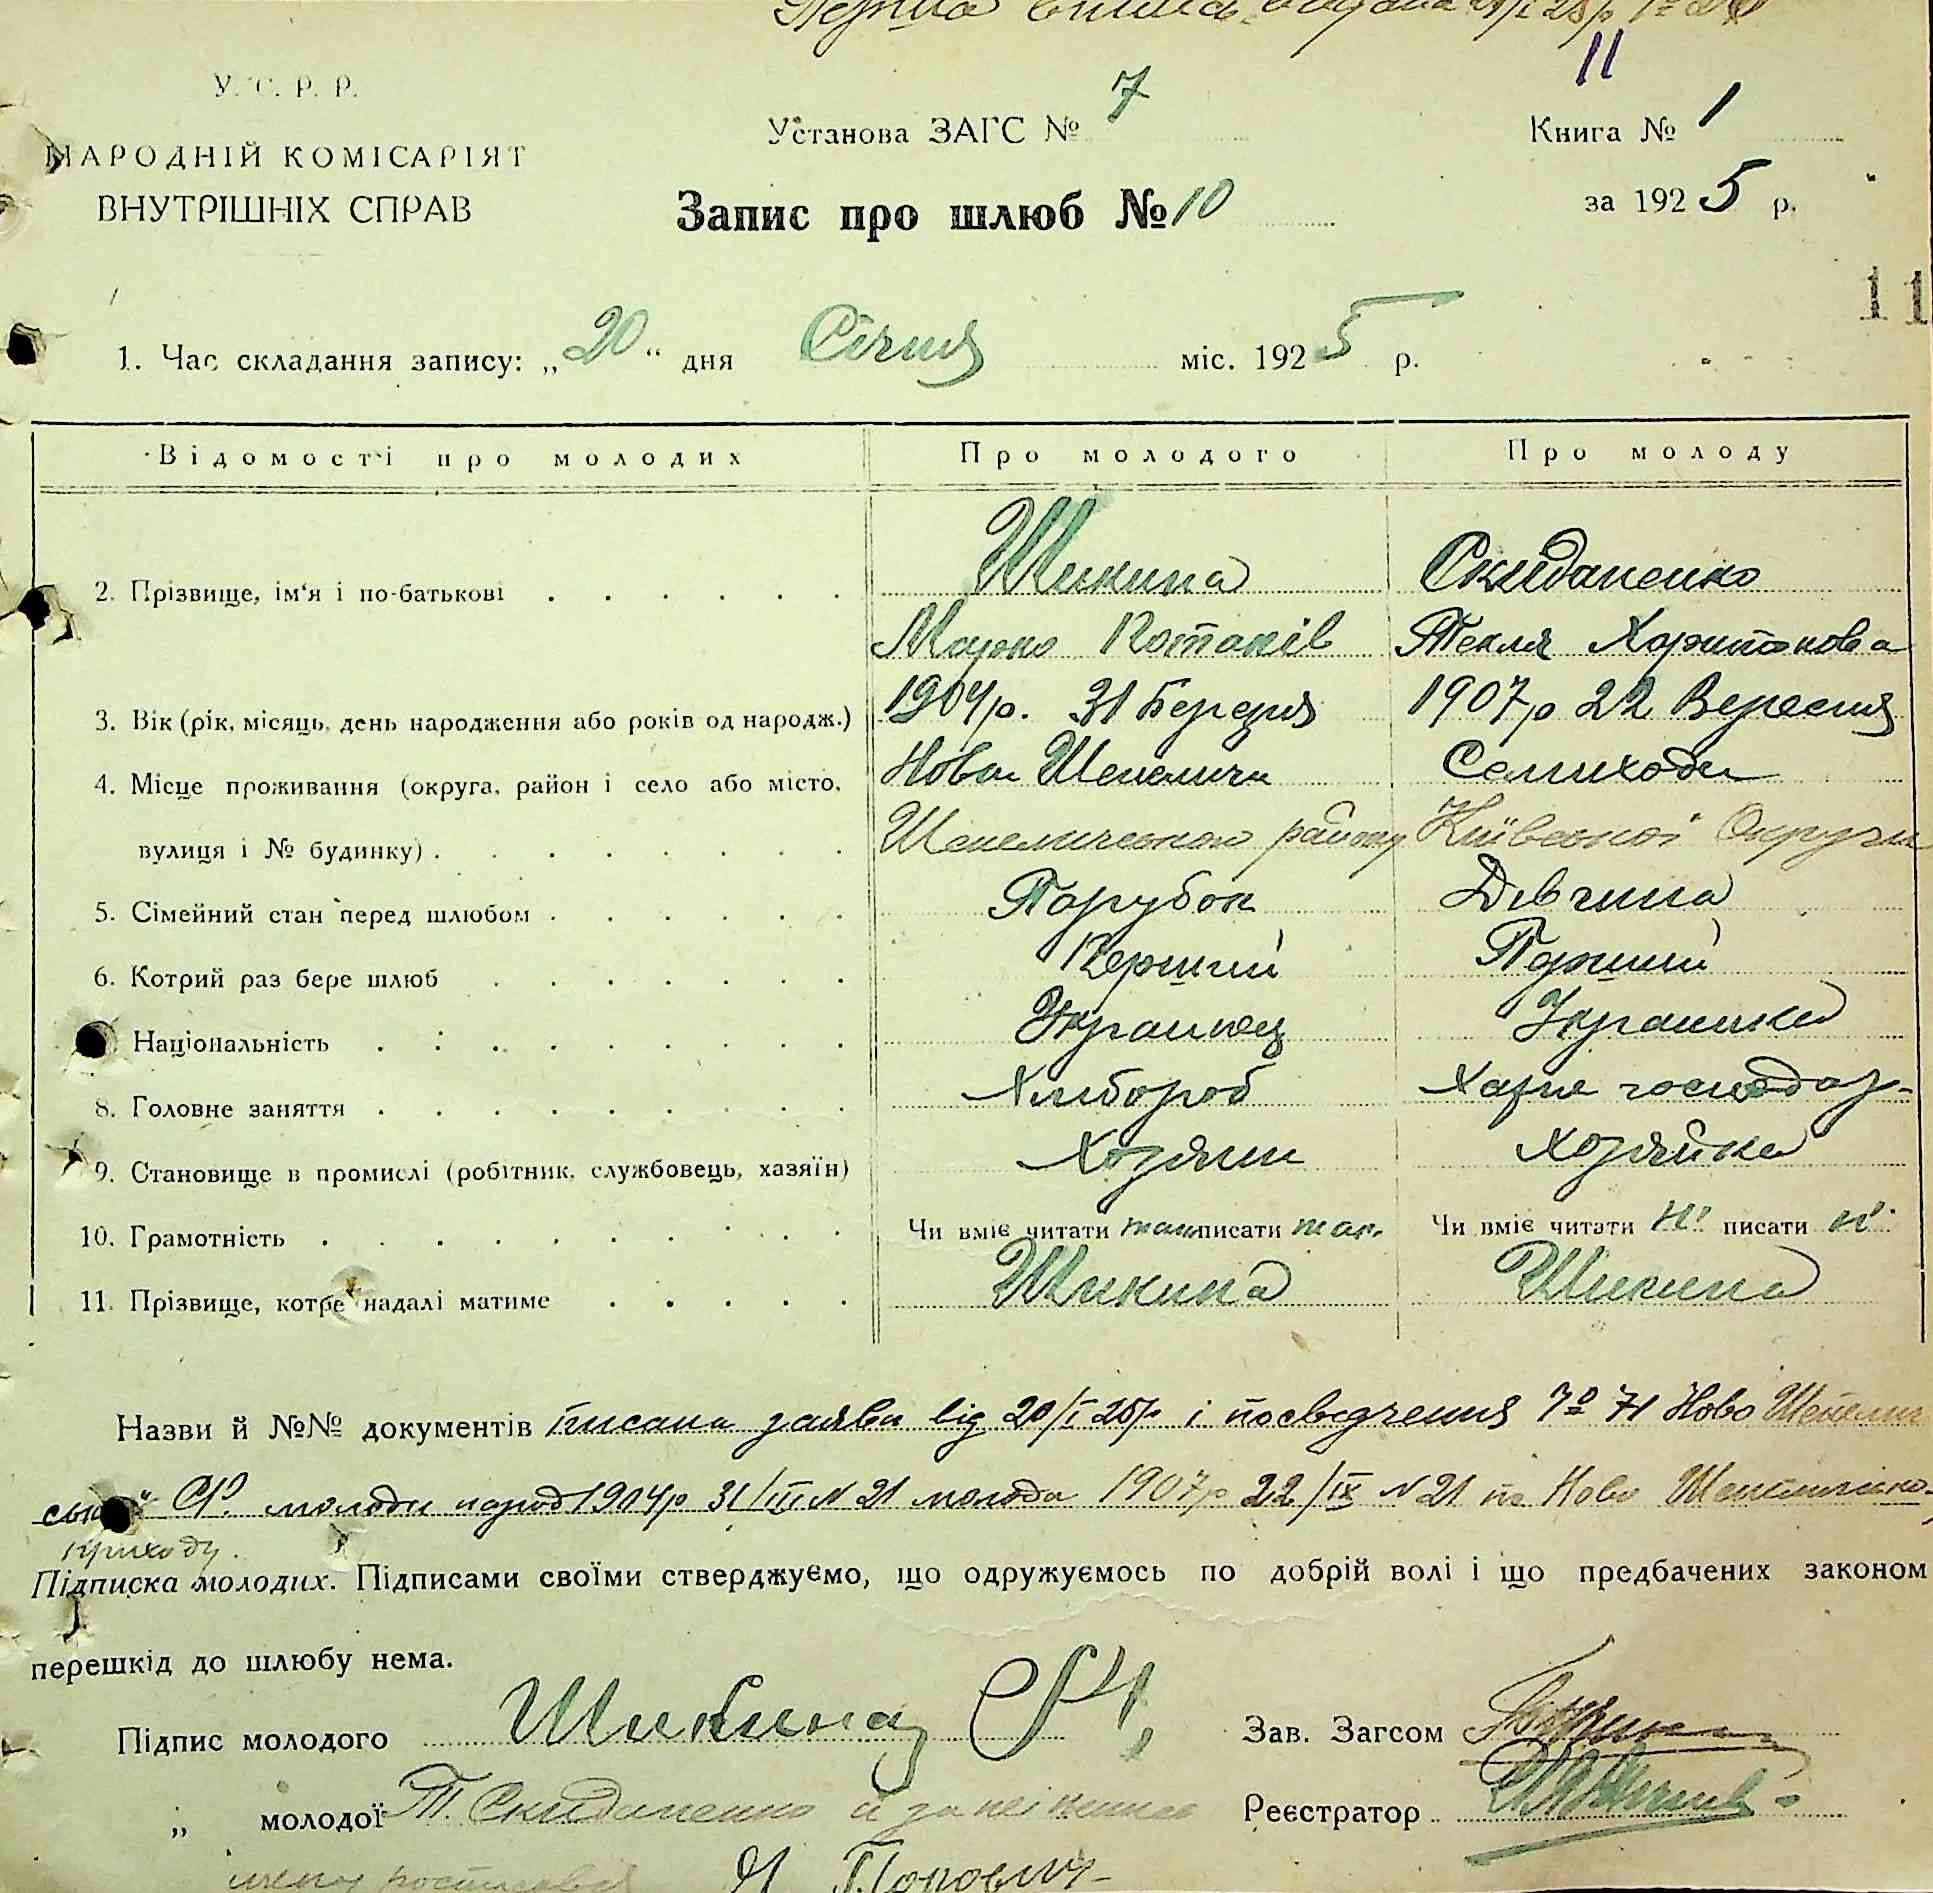 11
У. С. Р. Р.
Установа ЗАГС № 7
Книга № 1
НАРОДНІЙ КОМІСАРІЯТ
ВНУТРІШНІХ СПРАВ
Запис про шлюб № 10
за 1925 р.
11
1. Час складання запису: „20“ дня Січня міс. 1925 р.
Відомості про молодих Про молодого Про молоду
2. Прізвище, ім'я і по-батькові Шикина Скиданенко
Марко Потапів Текля Харитонова
3. Вік (рік, місяць, день народження або років од народж.) 1904 р. 31 Березня 1907 р 22 Вересня
4. Місце проживання (округа, район і село або місто, Нови Шепеличи Семиходи
вулиця і № будинку) Шепелическою району Київської Округи
5. Сімейний стан перед шлюбом Парубок Дівчина
6. Котрий раз бере шлюб Перший Перший
Національність Украинец Украинка
8. Головне заняття Хлибороб Хатне господар-
9. Становище в промислі (робітник, службовець, хазяїн) Хозяин Хозяйка
10. Грамотність Чи вміє читати так писати так. Чи вміє читати ні писати ні
11. Прізвище, котре надалі матиме Шикина Шикина
Назви й №№ документів писана заява від 20/I 25 р. і посвідчення № 71 Ново Шепелич
С/Р. молоди народ 1904 р 31/III N 21 молода 1907 р 22/IX N 21 по Ново
приходу.
Підписка молодих. Підписами своїми стверджуємо, що одружуємось по добрій волі і що предбачених законом
перешкід до шлюбу нема.
Підпис молодого Шикина Зав. Загсом
„ молодої Т. Скиданенко а за неі Реєстратор
Попович